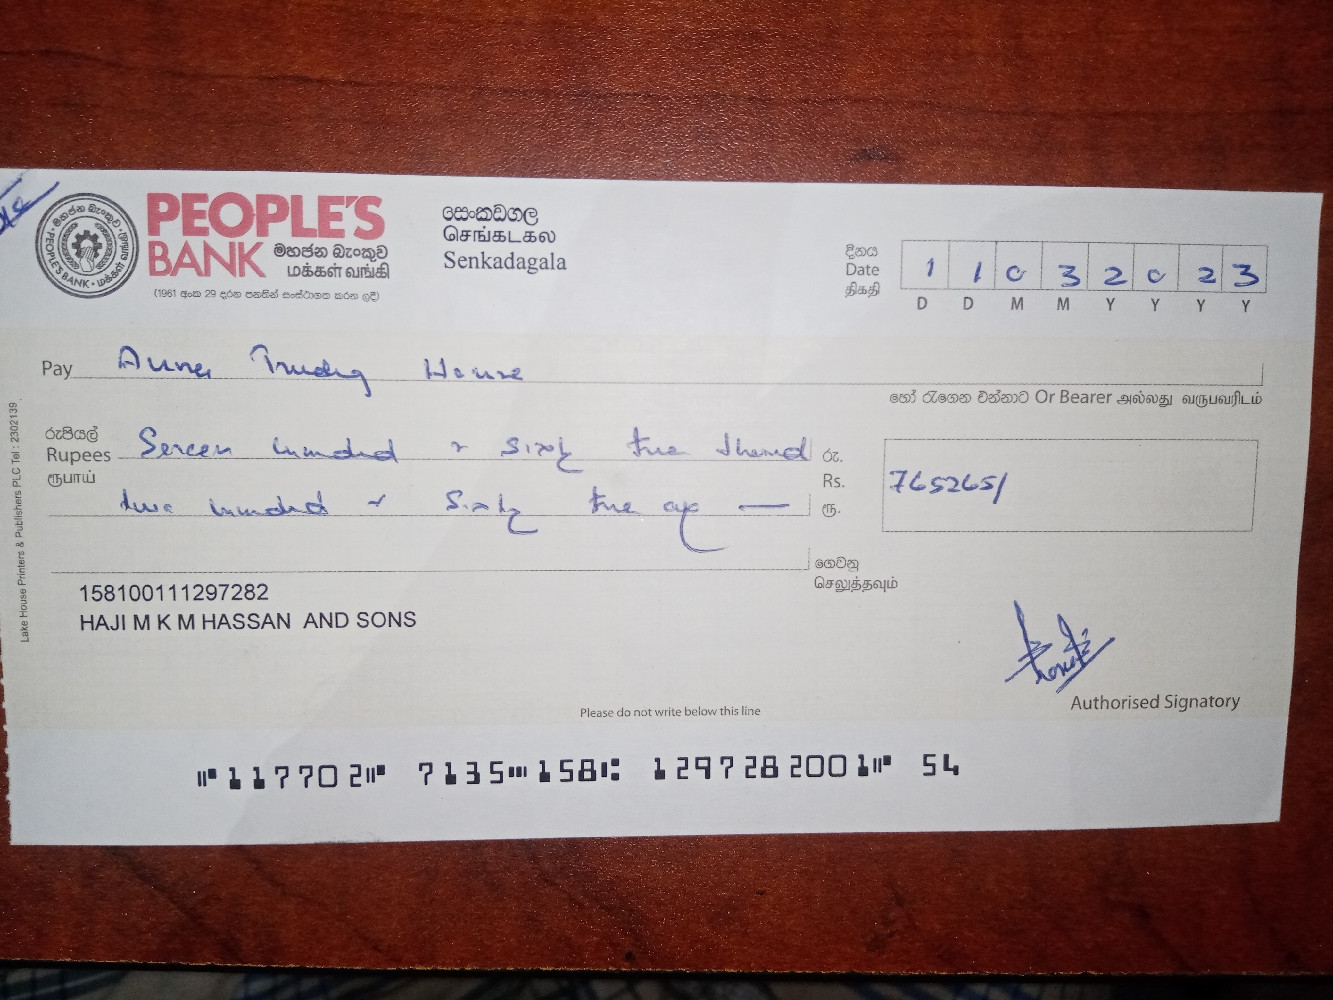 PEOPLE'S
BANK මහජන බැංකුව
மக்கள் வங்கி
(1961 අංක 29 දරන පනතින් සංස්ථාගත කරන ලදී)
සෙංකඩගල
செங்கடகல
Senkadagala
දිනය
Date
திகதி
1 1 0 3 2 0 2 3
D D M M Y Y Y Y
Pay House
හෝ රැගෙන එන්නාට Or Bearer அல்லது வருபவரிடம்
රුපියල්
Rupees
ரூபாய்
hundred & sixty
two hundred & sixty
රු.
Rs. 765265/
ரூ.
ගෙවනු
செலுத்தவும்
158100111297282
HAJI M K M HASSAN AND SONS
Authorised Signatory
Please do not write below this line
117702 7135 158 1297282001 54
Lake House Printers & Publishers PLC Tel : 2302139